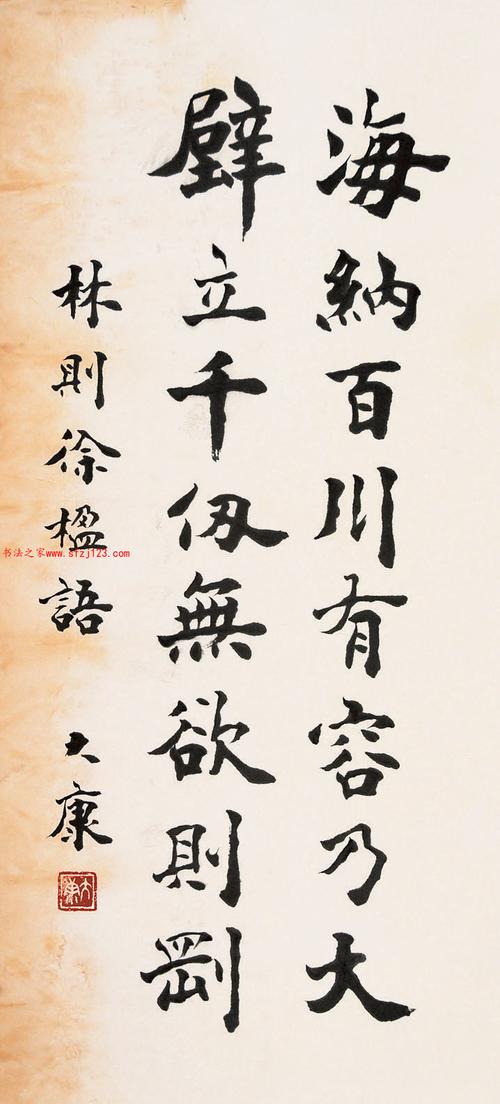 海納百川有容乃大
壁立千仞無欲則剛
林則徐楹語
大康
大康
书法之家www.sfzj123.com